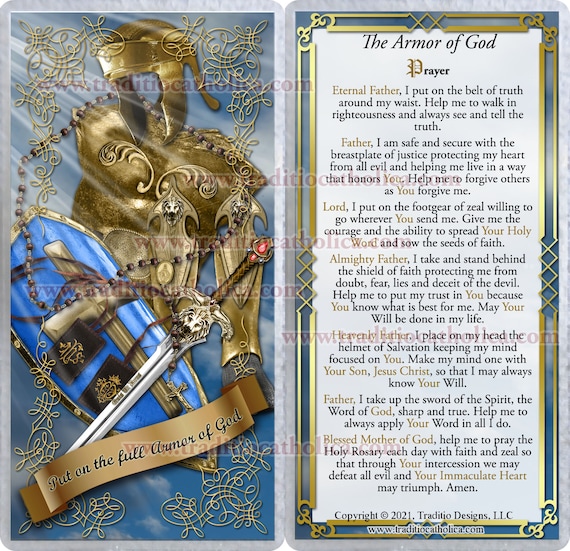 www.traditiocatholica.com
www.traditiocatholica.com
www.traditiocatholica.com
www.traditiocatholica.com
www.traditiocatholica.com
Put on the full Armor of God
The Armor of God
Prayer
Eternal Father, I put on the belt of truth
around my waist. Help me to walk in
righteousness and always see and tell the
truth.
Father, I am safe and secure with the
breastplate of justice protecting my heart
from all evil and helping me live in a way
that honors You. Help me to forgive others
as You forgive me.
Lord, I put on the footgear of zeal willing to
go wherever You send me. Give me the
courage and the ability to spread Your Holy
Word and sow the seeds of faith.
Almighty Father, I take and stand behind
the shield of faith protecting me from
doubt, fear, lies and deceit of the devil.
Help me to put my trust in You because
You know what is best for me. May Your
Will be done in my life.
Heavenly Father, I place on my head the
helmet of Salvation keeping my mind
focused on You. Make my mind one with
Your Son, Jesus Christ, so that I may always
know Your Will.
Father, I take up the sword of the Spirit, the
Word of God, sharp and true. Help me to
always apply Your Word in all I do.
Blessed Mother of God, help me to pray the
Holy Rosary each day with faith and zeal so
that through Your intercession we may
defeat all evil and Your Immaculate Heart
may triumph. Amen.
Copyright © 2021, Traditio Designs, LLC
www.traditiocatholica.com